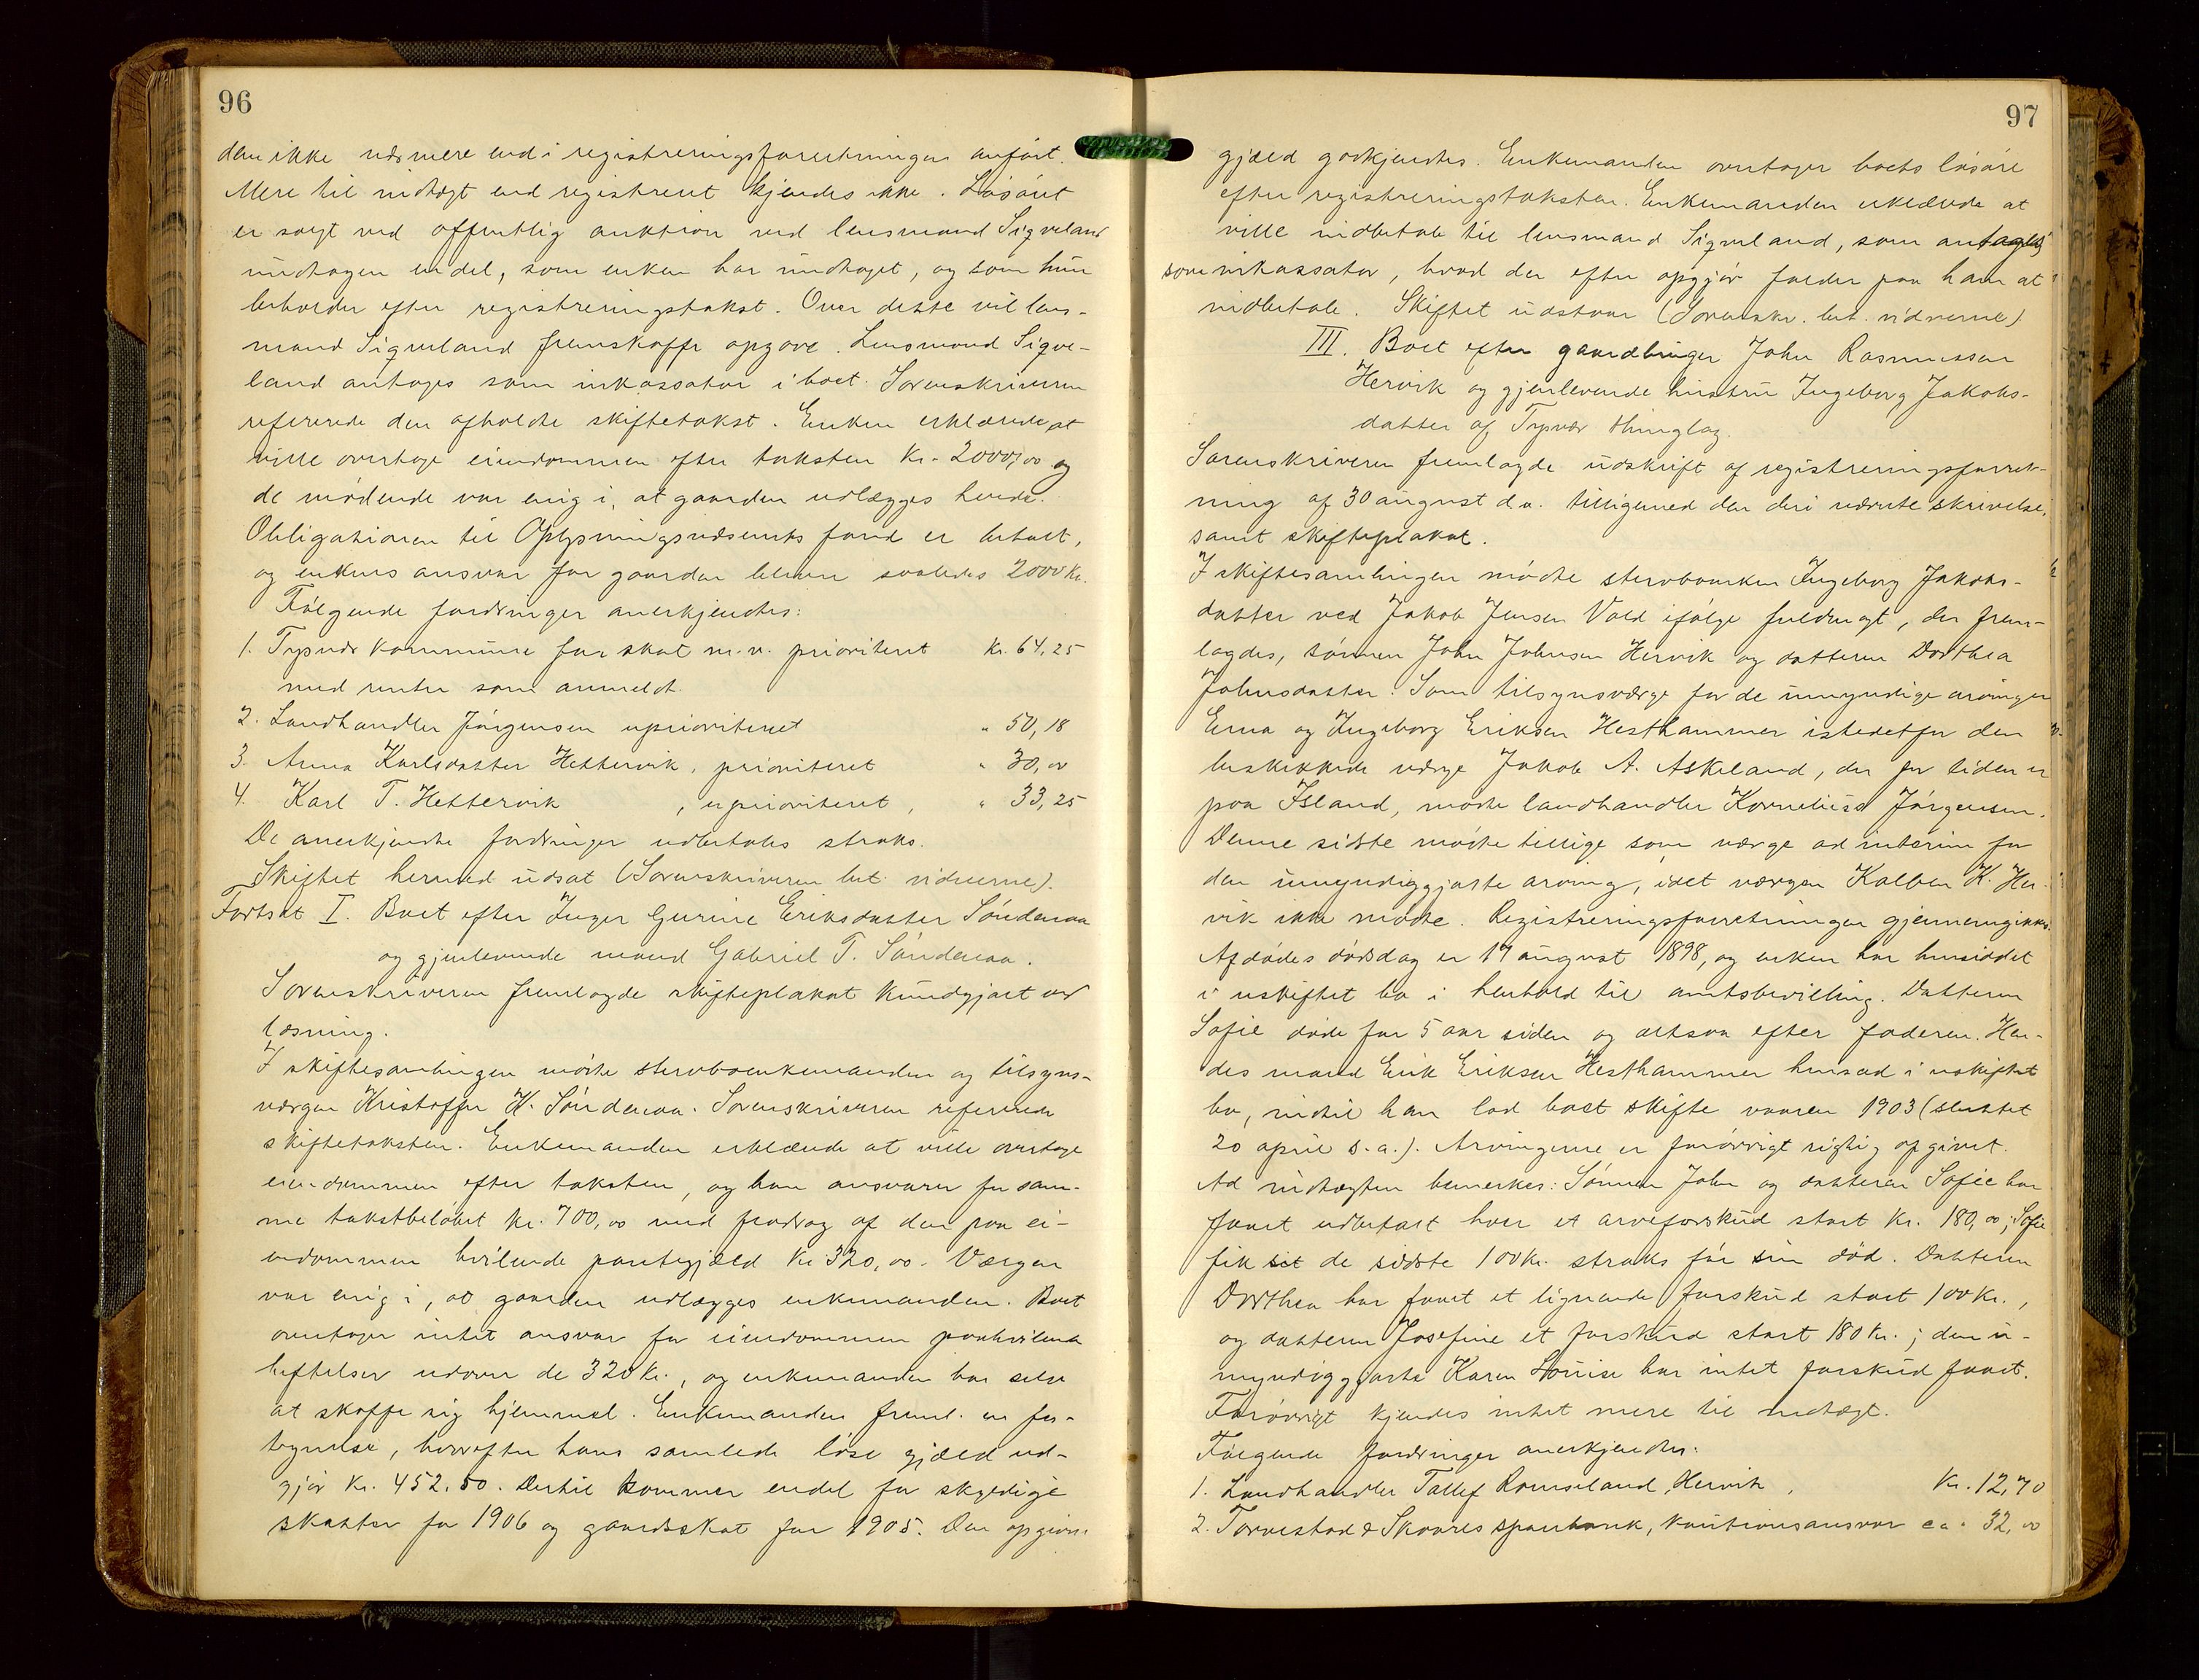 96
dem ikke nærmere end i registreringsforretningen anført.
Mere til indtægt end registreret kjendes ikke. Løsøret
er solgt ved offentlig auktion ved lensmand Sigveland
undtagen endel, som enken har undtaget, og som hun
beholder efter registreringstakst. Over dette vil lens-
mand Sigveland fremskaffe opgave. Lensmand Sigve-
land antages som inkassator i boet. Sorenskriveren
refererede den afholdte skiftetakst. Enken erklærede at
ville overtage eiendommen efter taksten kr. 2000,00 og
de mødende var enig i, at gaarden udlægges hende.
Obligationen til Oplysningsvæsenets fond er betalt,
og enkens ansvar for gaarden bliver saaledes 2000 kr.
Følgende fordringer anerkjendtes:
1. Tysvær kommune for skat m.v. prioriteret kr. 64,25
med renter som anmeldt.
2. Landhandler Jørgensen uprioriteret " 50,18
3. Anna Karlsdatter Hettervik, prioriteret " 30,00
4. Karl T. Hettervik, uprioriteret, " 33,25
De anerkjendte fordringer udbetales straks.
Skiftet hermed udsat (Sorenskriveren bet. vidnerne).
Fortsat I. Boet efter Inger Gurine Eriksdatter Søndenaa
og gjenlevende mand Gabriel T. Søndenaa.
Sorenskriveren fremlagde skifteplakat kundgjort ved
læsning.
I skiftesamlingen mødte stervboenkemanden og tilsyns-
værgen Kristoffer K. Søndenaa. Sorenskriveren refererede
skiftetaksten. Enkemanden erklærede at ville overtage
eiendommen efter taksten, og han ansvarer for sam-
me takstbeløbet kr. 700,00 med fradrag af den paa ei-
endommen hvilende pantegjæld kr. 320,00. Værgen
var enig i, at gaarden udlægges enkemanden. Boet
overtager intet ansvar for eiendommen paahvilende
heftelser udover de 320 kr., og enkemanden har selv
at skaffe sig hjemmel. Enkemanden freml. en for-
tegnelse, hvorefter hans samlede løse gjæld ud-
gjør kr. 452,50. Dertil kommer endel for skyldige
skatter for 1906 og gaardsskat for 1905. Den opgivne
97
gjæld godkjendtes. Enkemanden overtager boets løsøre
efter registreringstaksten. Enkemanden erklærede at
ville indbetale til lensmand Sigveland, som antages
som inkassator, hvad der efter opgjør falder paa ham at
indbetale. Skiftet udstaar (Sorenskr. bet. vidnerne)
III. Boet efter gaardbruger John Rasmussen
Hervik og gjenlevende hustru Ingeborg Jakobs-
datter af Tysvær thinglag.
Sorenskriveren fremlagde udskrift af registreringsforret-
ning af 30 august d.a. tilligemed den deri nævnte skrivelse,
samt skifteplakat.
I skiftesamlingen mødte stervboenken Ingeborg Jakobs-
datter ved Jakob Jensen Vold ifølge fuldmagt, der frem-
lagdes, sønnen John Johnsen Hervik og datteren Dorthea
Johnsdatter. Som tilsynsværge for de umyndige arvinger
Erna og Ingeborg Eriksen Hesthammer istedetfor den
beskikkede værge Jakob A. Askeland, der for tiden er
paa Island, mødte landhandler Kornelius Jørgensen.
Denne sidste mødte tillige som værge ad interim for
den umyndiggjorte arving, idet værgen Kolben K. Her-
vik ikke mødte. Registreringsforretningen gjennemgikkes.
Afdødes dødsdag er 17 august 1898, og enken har hensiddet
i uskiftet bo i henhold til amtsbevilling. Datteren
Sofie døde for 5 aar siden og altsaa efter faderen. Hen-
des mand Erik Eriksen Hesthammer hensad i uskiftet
bo, indtil han lod boet skifte vaaren 1903 (sluttet
20 april s.a.). Arvingerne er forøvrigt rigtig opgivet.
Ad indtægten bemerkes: Sønnen John og datteren Sofie har
faaet udbetalt hver et arveforskud stort kr. 180,00; Sofie
fik sit de sidste 100 kr. straks før sin død. Datteren
Dorthea har faaet et lignende forskud stort 100 kr.,
og datteren Josefine et forskud stort 180 kr.; den u-
myndiggjorte Karen Louise har intet forskud faaet.
Forøvrigt kjendes intet mere til indtægt.
Følgende fordringer anerkjendtes:
1. Landhandler Tollef Romseland, Hervik, kr. 12,70
2. Torvestad & Skaares sparebank, kautionsansvar ca. 32,00